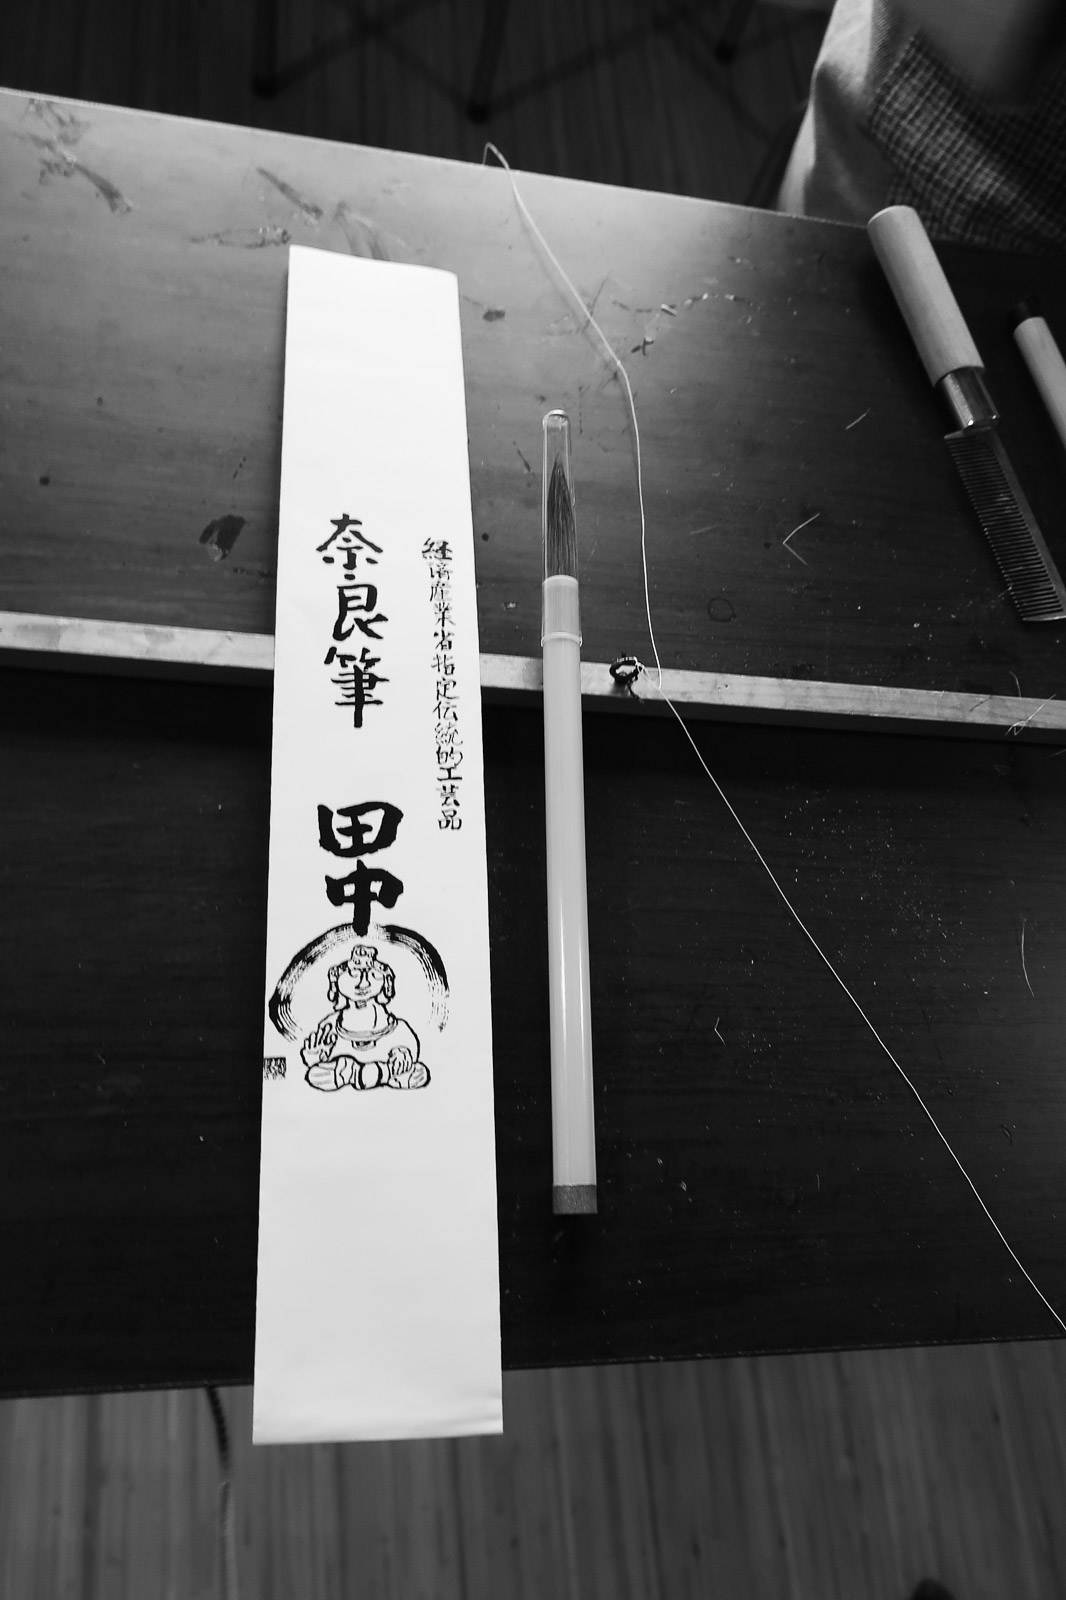 経済産業省指定伝統的工芸品
奈良筆 田中